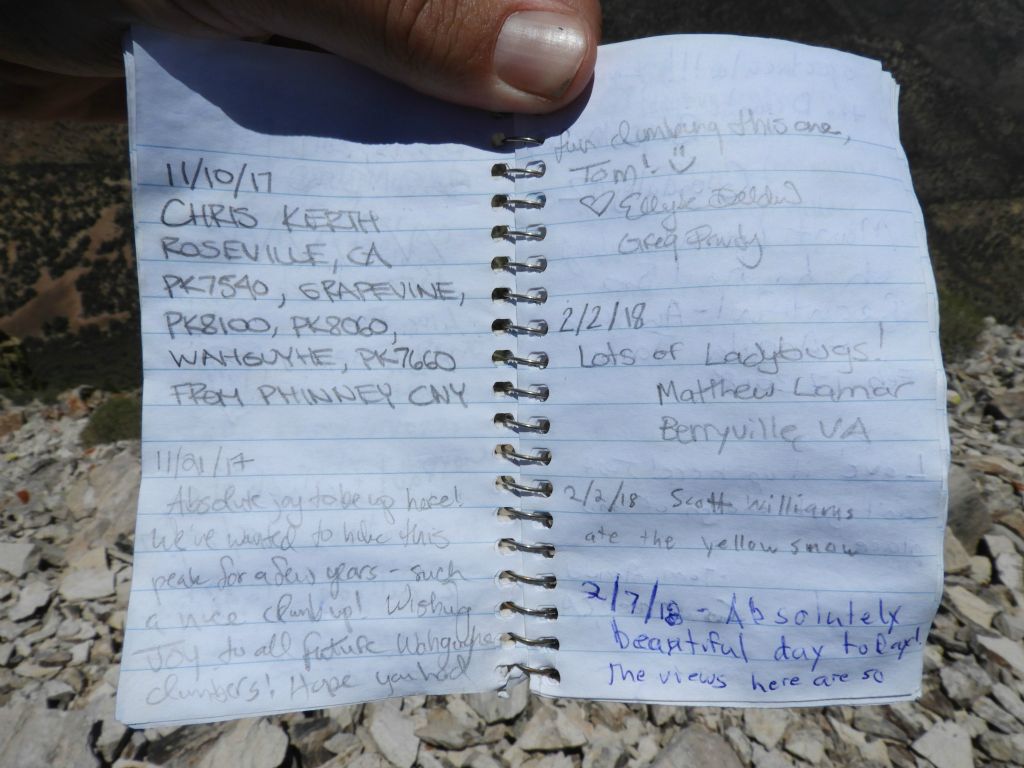 11/10/17
CHRIS KERTH
ROSEVILLE, CA
PK7540, GRAPEVINE,
PK8100, PK8060,
WAHGUYHE, PK7660
FROM PHINNEY CNY
11/21/17
Absolute joy to be up here!
We've wanted to hike this
peak for a few years - such
a nice climb up! Wishing
Joy to all future Wahguyhe
climbers! Hope you had
fun climbing this one,
Tom! ☺
♡ Ellyce
Greg Purdy
2/2/18
Lots of Ladybugs!
Matthew Lamar
Berryville, VA
2/2/18 Scott Williams
ate the yellow snow
2/7/18 - Absolutely
beautiful day today!
The views here are so